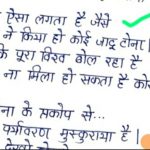 ऐसा लगता है जैसे
ने किया हो कोई जादू टोना।
के पूरा विश्व बोल रहा है
ना मिला हो सकता है कोर
ना के प्रकोप से...
पर्यावरण मुस्कुराया है।